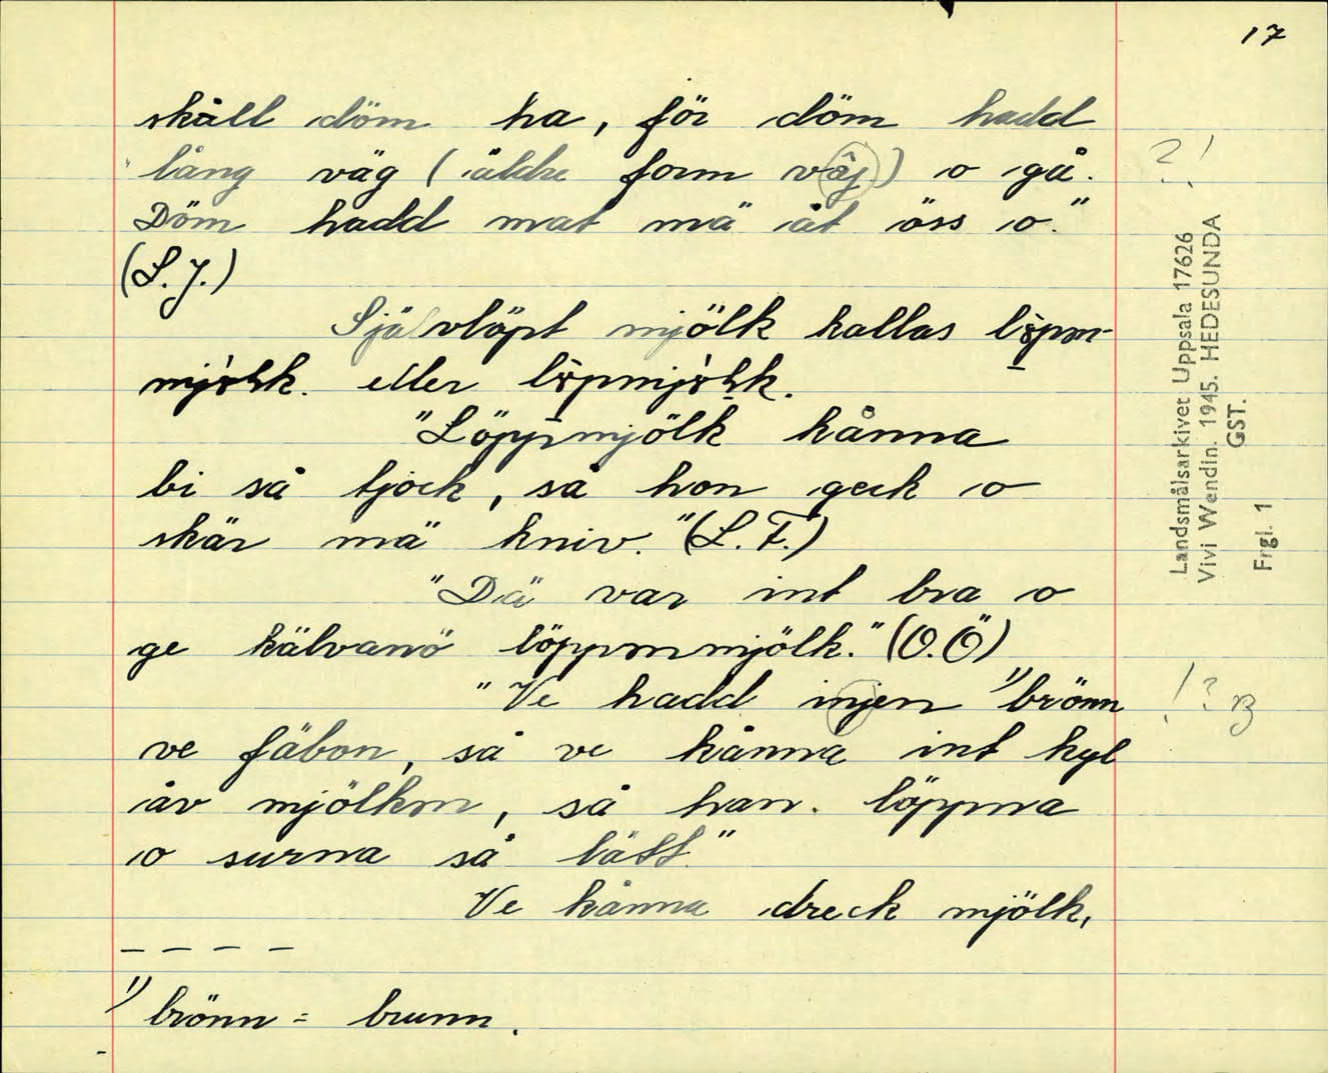 17
skäll döm ha, för döm hadd
lång väg (äldre form vâj) o gå.
Döm hadd mat mä åt öss o."
(L.J.)
Självlöpt mjölk kallas
eller
"Löppmjölk kånna
bi så tjock, så hon geck o
skär mä kniv." (L.F.)
"Dä var int bra o
ge kälvanö löppmmjölk." (O.Ö)
"Ve hadd injen 1) brönn
ve fäbon, så ve kånna int kyl
åv mjölkm, så han. löppna
o surna så lätt."
Ve kånna dreck mjölk,
- - - -
1) brönn = brunn.
? !
! ? B
Landsmålsarkivet Uppsala 17626
Vivi Wendin. 1945. HEDESUNDA
GST.
Frgl. 1